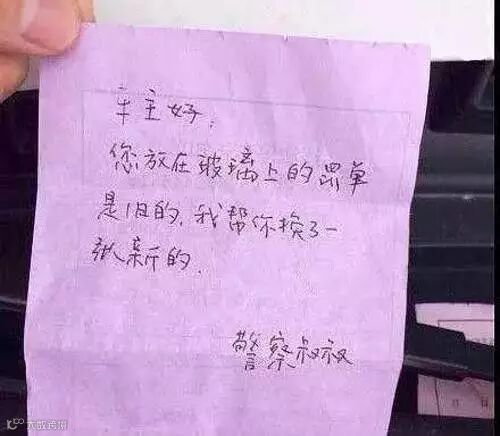 车主好,
您放在玻璃上的罚单
是旧的,我帮你换了一
张新的.
警察叔叔
大成透明